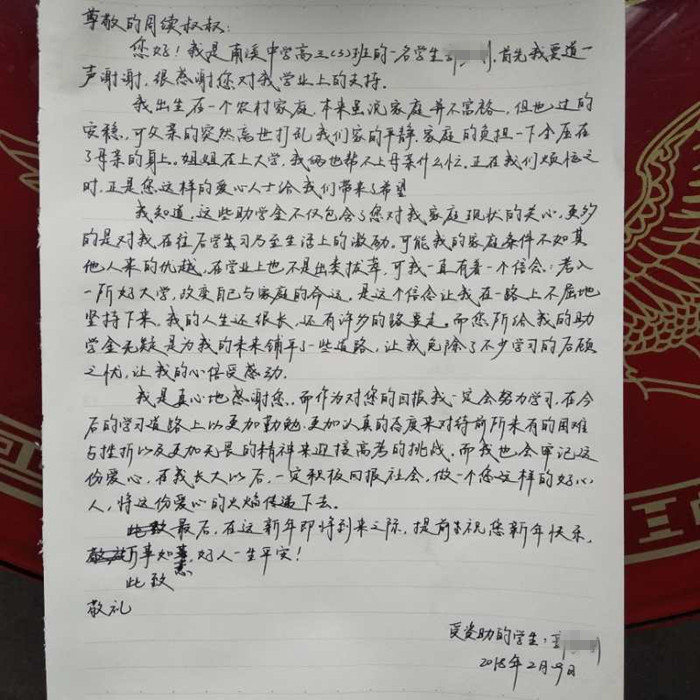 尊敬的周续叔叔:
您好！我是南溪中学高三(5)班的一名学生 首先我要道一
声谢谢，很感谢您对我学业上的支持。
我出生在一个农村家庭，本来虽说家庭并不富裕，但也过的
安稳，可父亲的突然离世打乱我们家的平静，家庭的负担一下全压在
了母亲的身上。姐姐在上大学，我俩也帮不上母亲什么忙。正在我们烦恼之
时，正是您这样的爱心人士给我们带来了希望
我知道，这些助学金不仅包含了您对我家庭现状的关心，更多
的是对我在往后学习乃至生活上的激励。可能我的家庭条件不如其
他人来的优越，在学业上也不是出类拔萃，可我一直有着一个信念：考入
一所好大学，改变自己与家庭的命运。是这个信念让我在一路上不屈地
坚持下来。我的人生还很长，还有许多的路要走。而您所给我的助
学金无疑是为我的未来铺平了一些道路，让我免除了不少学习的后顾
之忧，让我的心倍受感动。
我是真心地感谢您。而作为对您的回报我一定会努力学习，在今
后的学习道路上以更加勤勉，更加认真的态度来对待前所未有的困难
与挫折以及更加无畏的精神来迎接高考的挑战。而我也会牢记这
份爱心，在我长大以后，一定积极回报社会，做一个您这样的好心
人，将这份爱心的火焰传递下去。
此致 最后，在这新年即将到来之际，提前祝您新年快乐，
万事如意，好人一生平安！
此致
敬礼
受资助的学生：
2018年2月9日